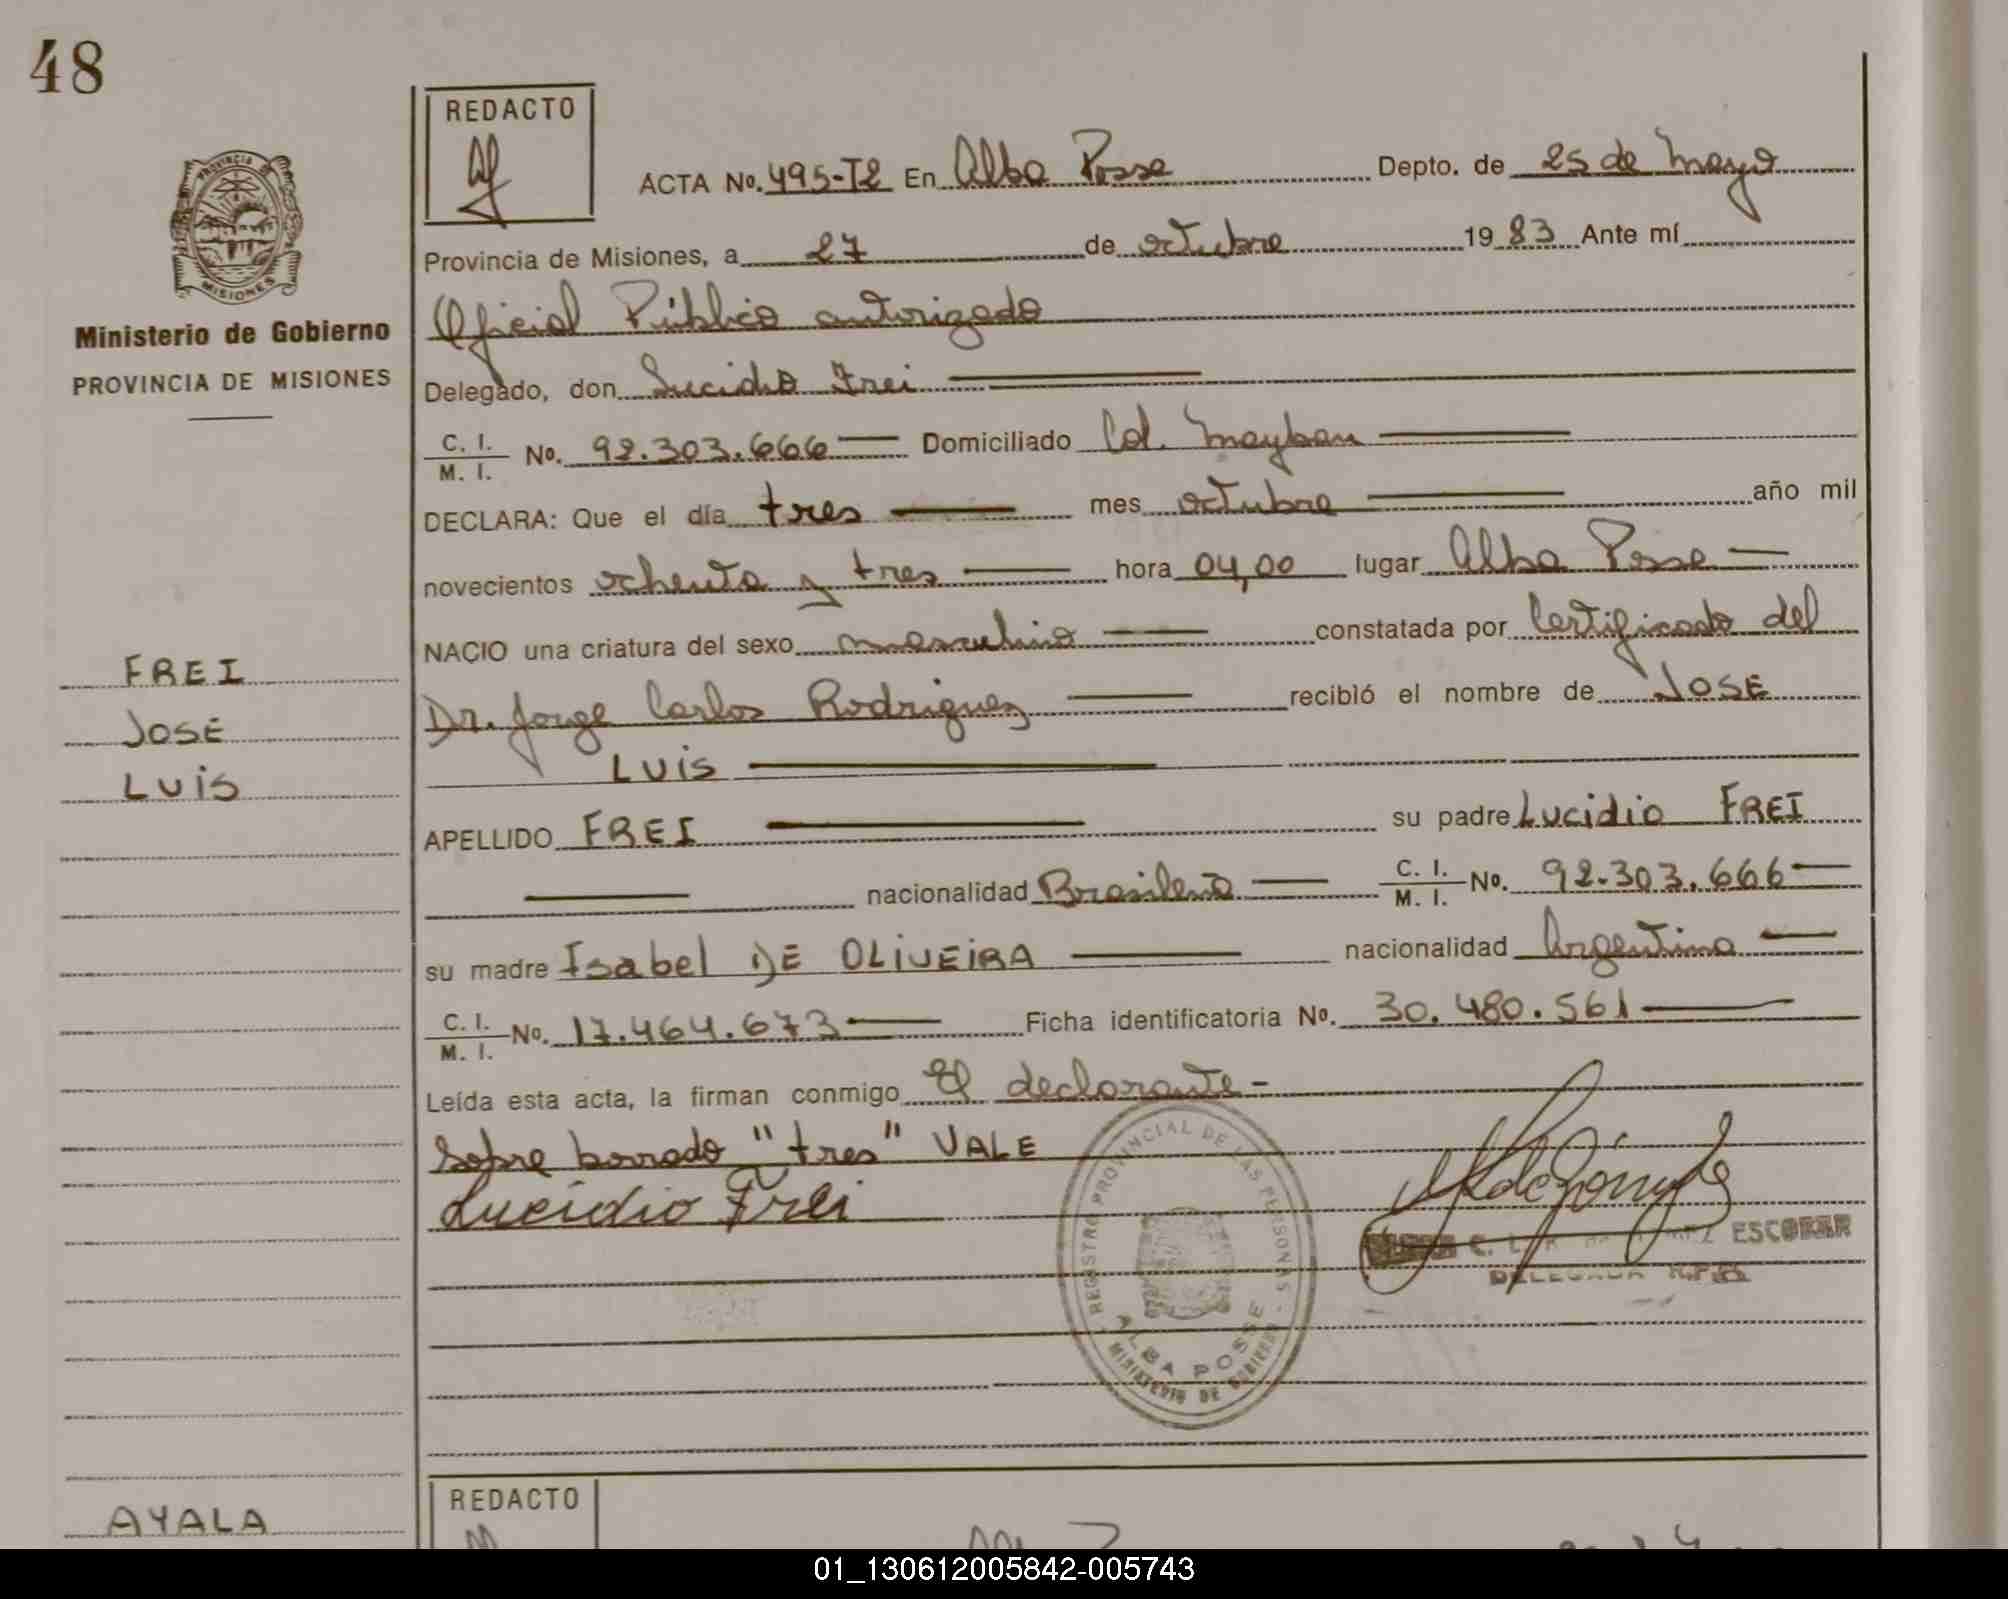 48
REDACTO
ACTA No. 495-T2 En Alba Posse Depto. de 25 de Mayo
Provincia de Misiones, a 27 de octubre 1983 Ante mí
Oficial Público autorizado
PROVINCIA
MISIONES
Ministerio de Gobierno
PROVINCIA DE MISIONES
Delegado, don Lucidio Frei
C. I.
M. I. No. 92.303.666 Domiciliado Col. Mayban
DECLARA: Que el día tres mes octubre año mil
novecientos ochenta y tres hora 04,00 lugar Alba Posse
NACIO una criatura del sexo masculino constatada por Certificado del
FREI
JOSÉ
LUIS
Dr. Jorge Carlos Rodriguez recibió el nombre de JOSE
LUIS
APELLIDO FREI su padre Lucidio FREI
nacionalidad Brasileña C. I.
M. I. No. 92.303.666
su madre Isabel DE OLIVEIRA nacionalidad Argentina
C. I.
M. I. No. 17.464.673 Ficha identificatoria No. 30.480.561
Leída esta acta, la firman conmigo El declarante-
Sobre borrado "tres" VALE
Lucidio Frei
REGISTRO PROVINCIAL DE LAS PERSONAS
ALBA POSSE
MINISTERIO DE GOBIERNO
ESCOBAR
DELEGADA
REDACTO
AYALA
01_130612005842-005743